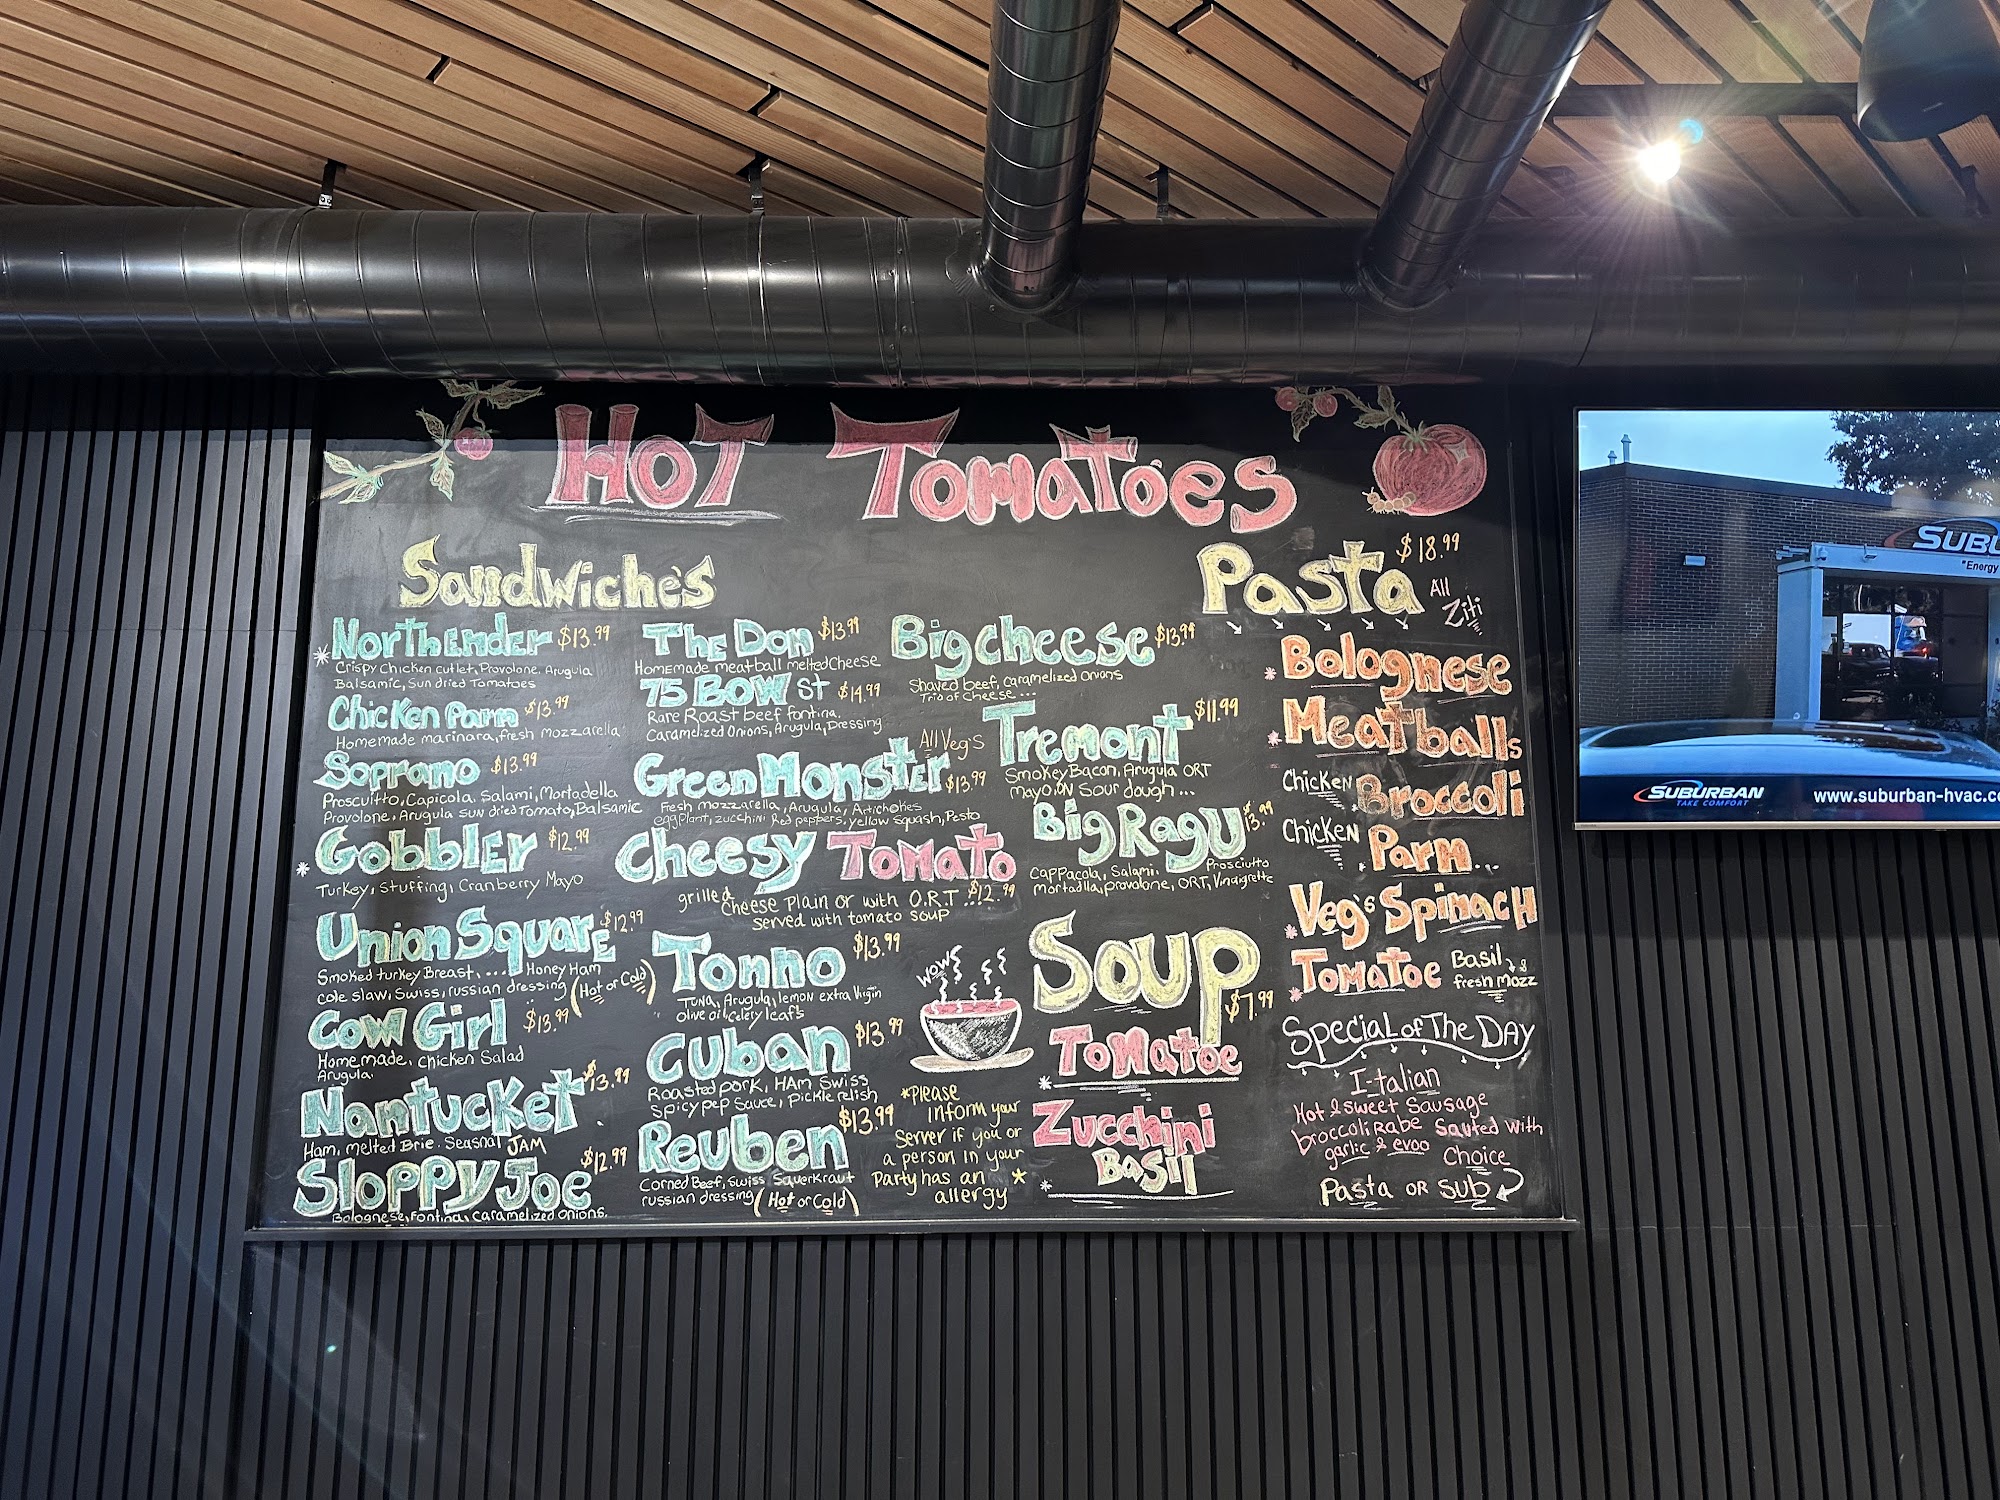 Hot Tomatoes
Sandwiche's
NorthEnder $13.99
Crispy Chicken cutlet, Provolone, Arugula
Balsamic, Sun dried Tomatoes
Chicken Parm $13.99
Homemade marinara, fresh mozzarella
Soprano $13.99
Proscuitto, Capicola, Salami, Mortadella
Provolone, Arugula sun dried Tomato, Balsamic
Gobbler $12.99
Turkey, Stuffing, Cranberry Mayo
Union Square $12.99
Smoked turkey Breast, ... Honey Ham
cole slaw, Swiss, russian dressing (Hot or Cold)
Cow Girl $13.99
Homemade, Chicken Salad
Arugula.
Nantucket $13.99
Ham, melted Brie. Seasnal JAM
Sloppy Joe $12.99
Bolognese, Fontina, Caramelized Onions.
The Don $13.99
Homemade meatball melted Cheese
75 Bow St $14.99
Rare Roast beef fontina,
Caramelized Onions, Arugula, Dressing
All Veg's
Green Monster $13.99
Fresh mozzarella, Arugula, Artichokes
eggplant, zucchini Red peppers, yellow squash, Pesto
Cheesy Tomato
grilled Cheese Plain or with O.R.T ... $12.99
Served with tomato soup
Tonno $13.99
Tuna, Arugula, lemon extra Virgin
Olive oil, Celery leafs
Cuban $13.99
Roasted pork, HAm Swiss
Spicy pep sauce, pickle relish
Reuben $13.99
Corned Beef, Swiss Sauerkraut
russian dressing (Hot or Cold)
Big cheese $13.99
Shaved beef, Caramelized Onions
Trio of Cheese ...
Tremont $11.99
Smokey Bacon, Arugula ORT
Mayo, ON Sour dough ...
Big Ragu $13.99
Cappacola, Salami, Prosciutto
mortadlla, provolone, ORT, Vinaigrette
WOW
Soup $7.99
Tomatoe
Zucchini
Basil
*Please
inform your
Server if you or
a person in your
Party has an
allergy *
Pasta $18.99
All Ziti
Bolognese
Meatballs
Chicken Broccoli
Chicken Parm...
Veg's Spinach
Tomatoe Basil &
fresh mozz
Special of The Day
I-talian
Hot & Sweet Sausage
broccoli Rabe Sauted with
garlic & evoo Choice
Pasta or sub
"Energy
SUBURBAN
TAKE COMFORT
www.suburban-hvac.co